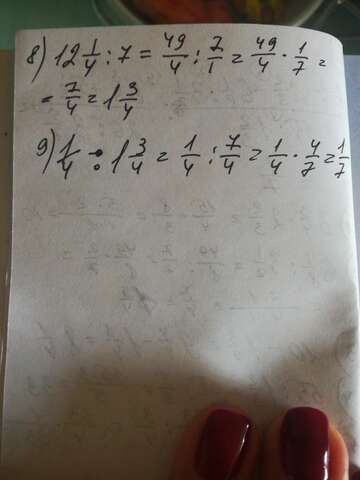 8) 12 1/4 : 7 = 49/4 : 7/1 = 49/4 · 1/7 =
= 7/4 = 1 3/4
9) 1/4 : 1 3/4 = 1/4 : 7/4 = 1/4 · 4/7 = 1/7